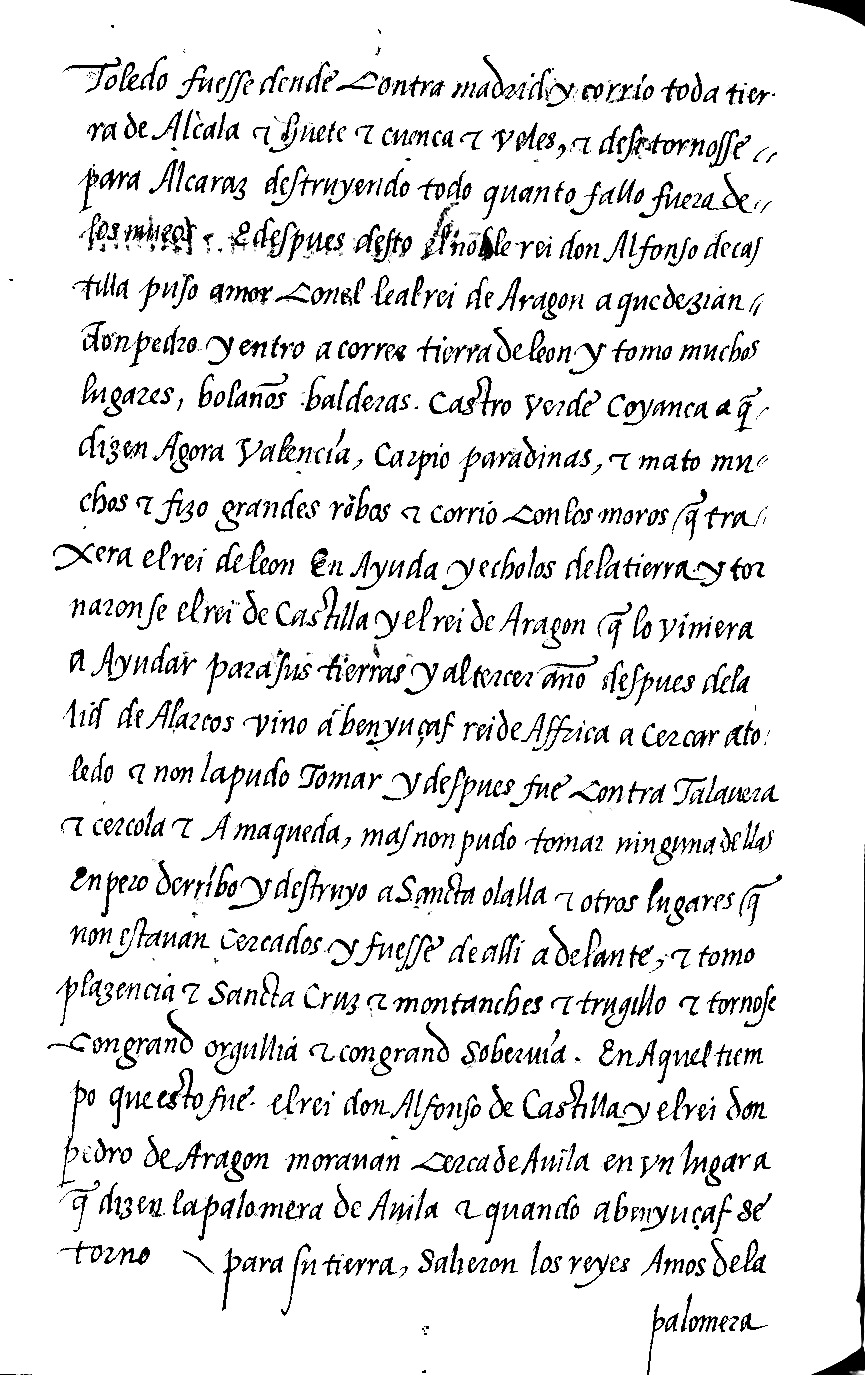 Toledo fuesse dende Contra madrid y corrio toda tier-
ra de Alcala & Huete & cuenca & Veles, & dese tornosse //
para Alcaraz destruyendo todo quanto fallo fuera de //
los muros. E despues desto el noble rei don Alfonso de cas
tilla puso amor Conel leal rei de Aragon a que dezian //
don pedro y entro a correr tierra de leon y tomo muchos
lugares, bolaños balderas. Castro verde Coyanca a q̃
dizen Agora Valencia, Carpio paradinas, & mato mu-
chos & fizo grandes robos & corrio Con los moros q̃ tra //
Xera el rei de leon En Ayuda y echolos de la tierra y tor
naronse el rei de Castilla y el rei de Aragon q̃ lo viniera
a Ayudar para sus tierras y al tercer año despues dela
lid de Alarcos vino abenyuçaf rei de Affrica a Cercar a to
ledo & non la pudo Tomar y despues fue Contra Talauera
& cercola & A maqueda, mas non pudo tomar ninguna dellas
En pero derribo y destruyo a Sancta olalla & otros lugares q̃
non estauan Cercados y fuesse de alli adelante, & tomo
plazencia & Sancta Cruz & montanches & trugillo & tornose
Con grand orgullia & con grand Soberuia. En Aquel tiem
po que esto fue. el rei don Alfonso de Castilla y el rei don
pedro de Aragon morauan Cerca de Auila en vn lugar a
q̃ dizen la palomera de Auila & quando abenyuçaf se
torno \ para su tierra, Salieron los reyes Amos dela
palomera